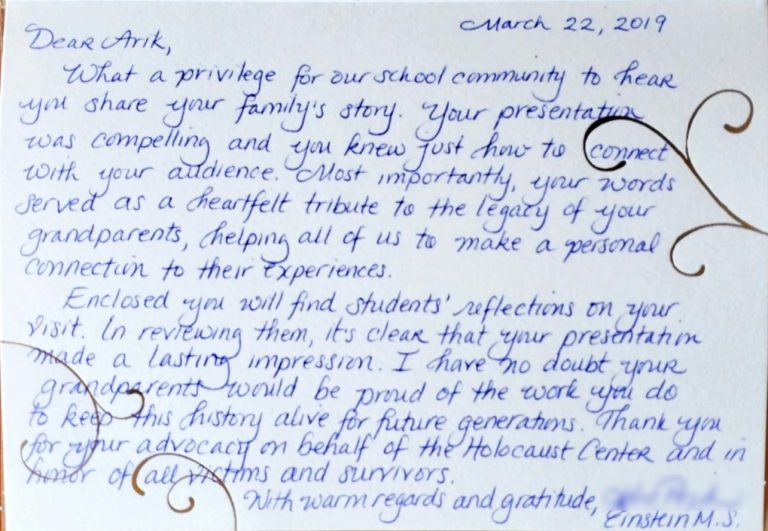 March 22, 2019
Dear Arik,
What a privilege for our school community to hear
you share your family's story. Your presentation
was compelling and you knew just how to connect
with your audience. Most importantly, your words
served as a heartfelt tribute to the legacy of your
grandparents, helping all of us to make a personal
connection to their experiences.
Enclosed you will find students' reflections on your
visit. In reviewing them, it's clear that your presentation
made a lasting impression. I have no doubt your
grandparents would be proud of the work you do
to keep this history alive for future generations. Thank you
for your advocacy on behalf of the Holocaust Center and in
honor of all victims and survivors.
With warm regards and gratitude,
Einstein M.S.